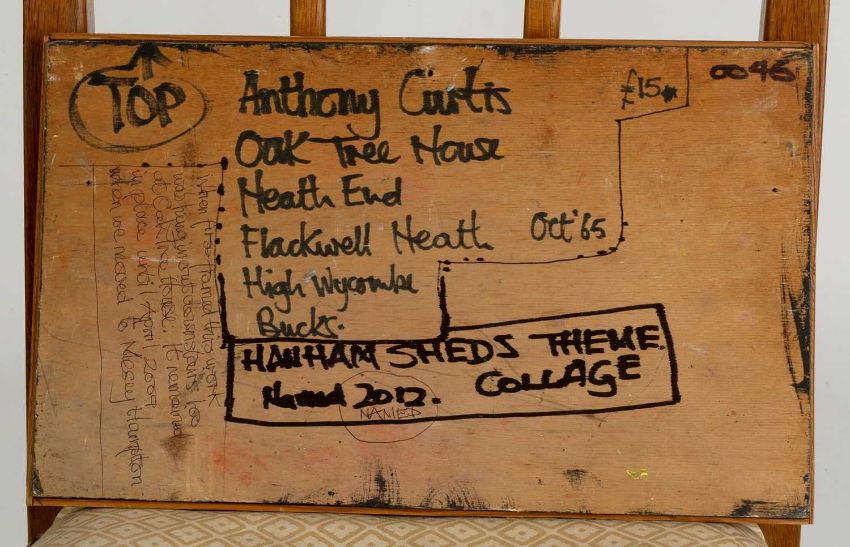 TOP
Anthony Curtis
Oak Tree House
Heath End
Flackwell Heath
High Wycombe
Bucks.
Oct '65
£15
0046
HANHAM SHEDS THEME
COLLAGE
Named 2012.
NAMED
When first framed this work
was hung in our downstairs loo
at Oak Tree House. It remained
in place until April 2009
when we moved to Meysey Hampton